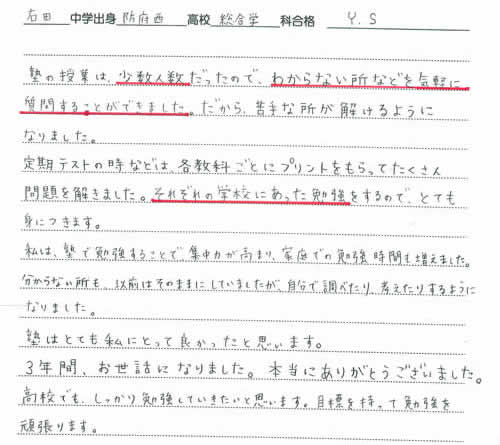 右田 中学出身 防府西 高校 総合学 科合格 Y.S
塾の授業は、少数人数だったので、わからない所などを気軽に
質問することができました。だから、苦手な所が解けるように
なりました。
定期テストの時などは、各教科ごとにプリントをもらってたくさん
問題を解きました。それぞれの学校にあった勉強をするので、とても
身につきます。
私は、塾で勉強することで、集中力が高まり、家庭での勉強時間も増えました。
分からない所も、以前はそのままにしていましたが、自分で調べたり、考えたりするように
なりました。
塾はとても私にとって良かったと思います。
3年間、お世話になりました。本当にありがとうございました。
高校でも、しっかり勉強していきたいと思います。目標を持って勉強を
頑張ります。